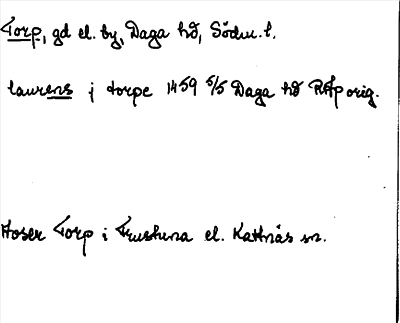 Torp, gd el. by, Daga hd, Södm. l.
laurens j torpe 1459 5/5 Daga hd RAp orig.
Avser Torp i Frustuna el. Kattnäs sn.